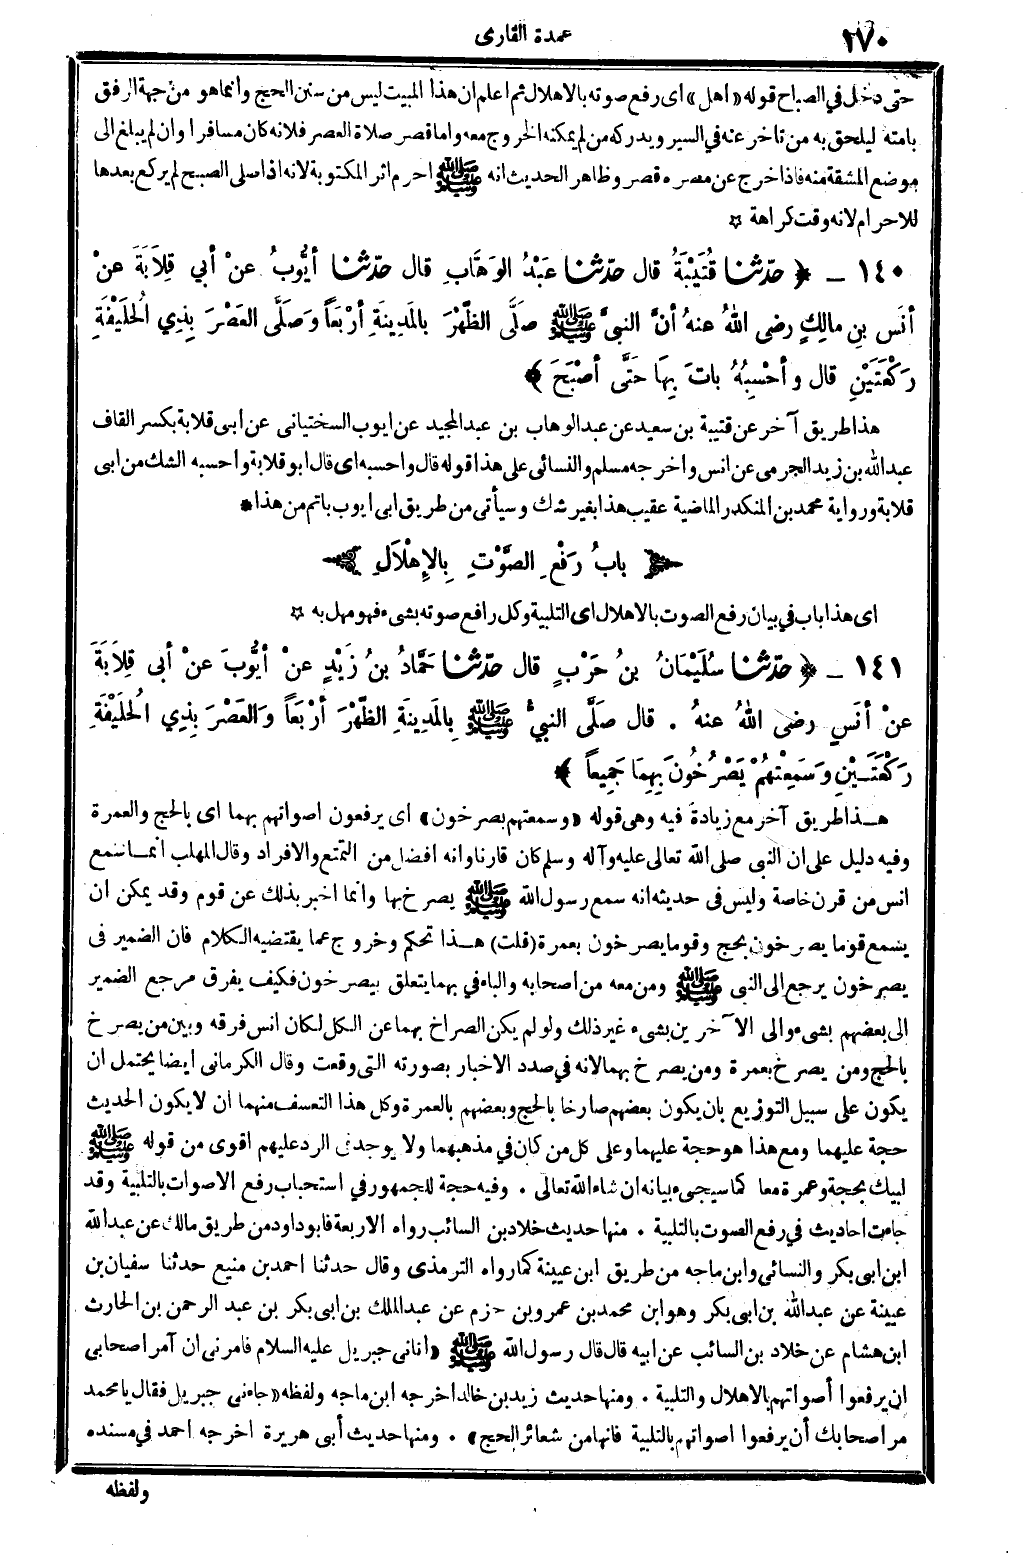 ١٧٠
عمدة القارى
حتى دخل فى الصباح قوله «اهل» اى رفع صوته بالاهلال ثم اعلم ان هذا المبيت ليس من سنن الحج وانما هو من جهة الرفق
بامته ليلحق به من تاخر عنه فى السير ويدركه من لم يمكنه الخروج معه واما قصر صلاة العصر فلانه كان مسافرا وان لم يبلغ الى
موضع المشقة منه فاذا خرج عن مصره قصر وظاهر الحديث انه ﷺ احرم اثر المكتوبة لانه اذا صلى الصبح لم يركع بعدها
للاحرام لانه وقت كراهة ☆
١٤٠ – ﴿ حَدَّثنا قُتَيْبَةُ قال حَدَّثنا عَبْدُ الوَهَّابِ قال حَدَّثنا أيُّوبُ عنْ أبي قِلَابَةَ عنْ
أنَسِ بنِ مالِكٍ رضى اللهُ عنهُ أنَّ النبيَّ ﷺ صلَّى الظُّهْرَ بالمَدِينَةِ أرْبَعاً وصَلَّى العَصْرَ بِذِي الحُلَيْفَةِ
رَكْعَتَيْنِ قال وأحْسِبُهُ باتَ بِهَا حَتَّى أصْبَحَ ﴾
هذا طريق آخر عن قتيبة بن سعيد عن عبد الوهاب بن عبد المجيد عن ايوب السختيانى عن ابى قلابة بكسر القاف
عبد الله بن زيد الجرمى عن انس واخرجه مسلم والنسائى على هذا قوله قال واحسبه اى قال ابو قلابة واحسبه الشك من ابى
قلابة ورواية محمد بن المنكدر الماضية عقيب هذا بغير شك وسيأتى من طريق ابى ايوب باتم من هذا *
﴿ بابُ رَفْعِ الصَّوْتِ بِالإِهْلَالِ ﴾
اى هذا باب فى بيان رفع الصوت بالاهلال اى التلبية وكل رافع صوته بشىء فهو مهل به ☆
١٤١ – ﴿ حَدَّثنا سُلَيْمَانُ بنُ حَرْبٍ قال حَدَّثنا حَمَّادُ بنُ زَيْدٍ عنْ أيُّوبَ عنْ أبى قِلَابَةَ
عنْ أنَسٍ رضى اللهُ عنهُ . قال صَلَّى النبيُّ ﷺ بِالمَدِينَةِ الظُّهْرَ أرْبَعاً والعَصْرَ بِذِي الحُلَيْفَةِ
رَكْعَتَيْنِ وسَمِعْتهُمْ يَصْرُخُونَ بِهِمَا جَمِيعاً ﴾
هذا طريق آخر مع زيادة فيه وهى قوله «وسمعتهم يصرخون» اى يرفعون اصواتهم بهما اى بالحج والعمرة
وفيه دليل على ان النبى صلى الله تعالى عليه وآله وسلم كان قارنا وانه افضل من التمتع والافراد وقال المهلب انما سمع
انس من قرن خاصة وليس فى حديثه انه سمع رسول الله ﷺ يصرخ بها وانما اخبر بذلك عن قوم وقد يمكن ان
يسمع قوما يصرخون بحج وقوما يصرخون بعمرة (قلت) هذا تحكم وخروج عما يقتضيه الكلام فان الضمير فى
يصرخون يرجع الى النبى ﷺ ومن معه من اصحابه والباء فى بهما يتعلق بيصرخون فكيف يفرق مرجع الضمير
الى بعضهم بشىء والى الآخرين بشىء غير ذلك ولو لم يكن الصراخ بهما عن الكل لكان انس فرقه وبين من يصرخ
بالحج ومن يصرخ بعمرة ومن يصرخ بهما لانه فى صدد الاخبار بصورته التى وقعت وقال الكرمانى ايضا يحتمل ان
يكون على سبيل التوزيع بان يكون بعضهم صارخا بالحج وبعضهم بالعمرة وكل هذا التعسف منهما ان لا يكون الحديث
حجة عليهما ومع هذا هو حجة عليهما وعلى كل من كان فى مذهبهما ولا يوجد فى الرد عليهم اقوى من قوله ﷺ
لبيك بحجة وعمرة معا كما سيجىء بيانه ان شاء الله تعالى . وفيه حجة للجمهور فى استحباب رفع الاصوات بالتلبية وقد
جاءت احاديث فى رفع الصوت بالتلبية . منها حديث خلاد بن السائب رواه الاربعة فابو داود من طريق مالك عن عبد الله
ابن ابى بكر والنسائى وابن ماجه من طريق ابن عيينة كما رواه الترمذى وقال حدثنا احمد بن منيع حدثنا سفيان بن
عيينة عن عبد الله بن ابى بكر وهو ابن محمد بن عمرو بن حزم عن عبد الملك بن ابى بكر بن عبد الرحمن بن الحارث
ابن هشام عن خلاد بن السائب عن ابيه قال قال رسول الله ﷺ «اتانى جبريل عليه السلام فامرنى ان آمر اصحابى
ان يرفعوا أصواتهم بالاهلال والتلبية . ومنها حديث زيد بن خالد اخرجه ابن ماجه ولفظه «جاءنى جبريل فقال يا محمد
مر اصحابك أن يرفعوا اصواتهم بالتلبية فانها من شعائر الحج» . ومنها حديث أبى هريرة اخرجه احمد فى مسنده
ولفظه